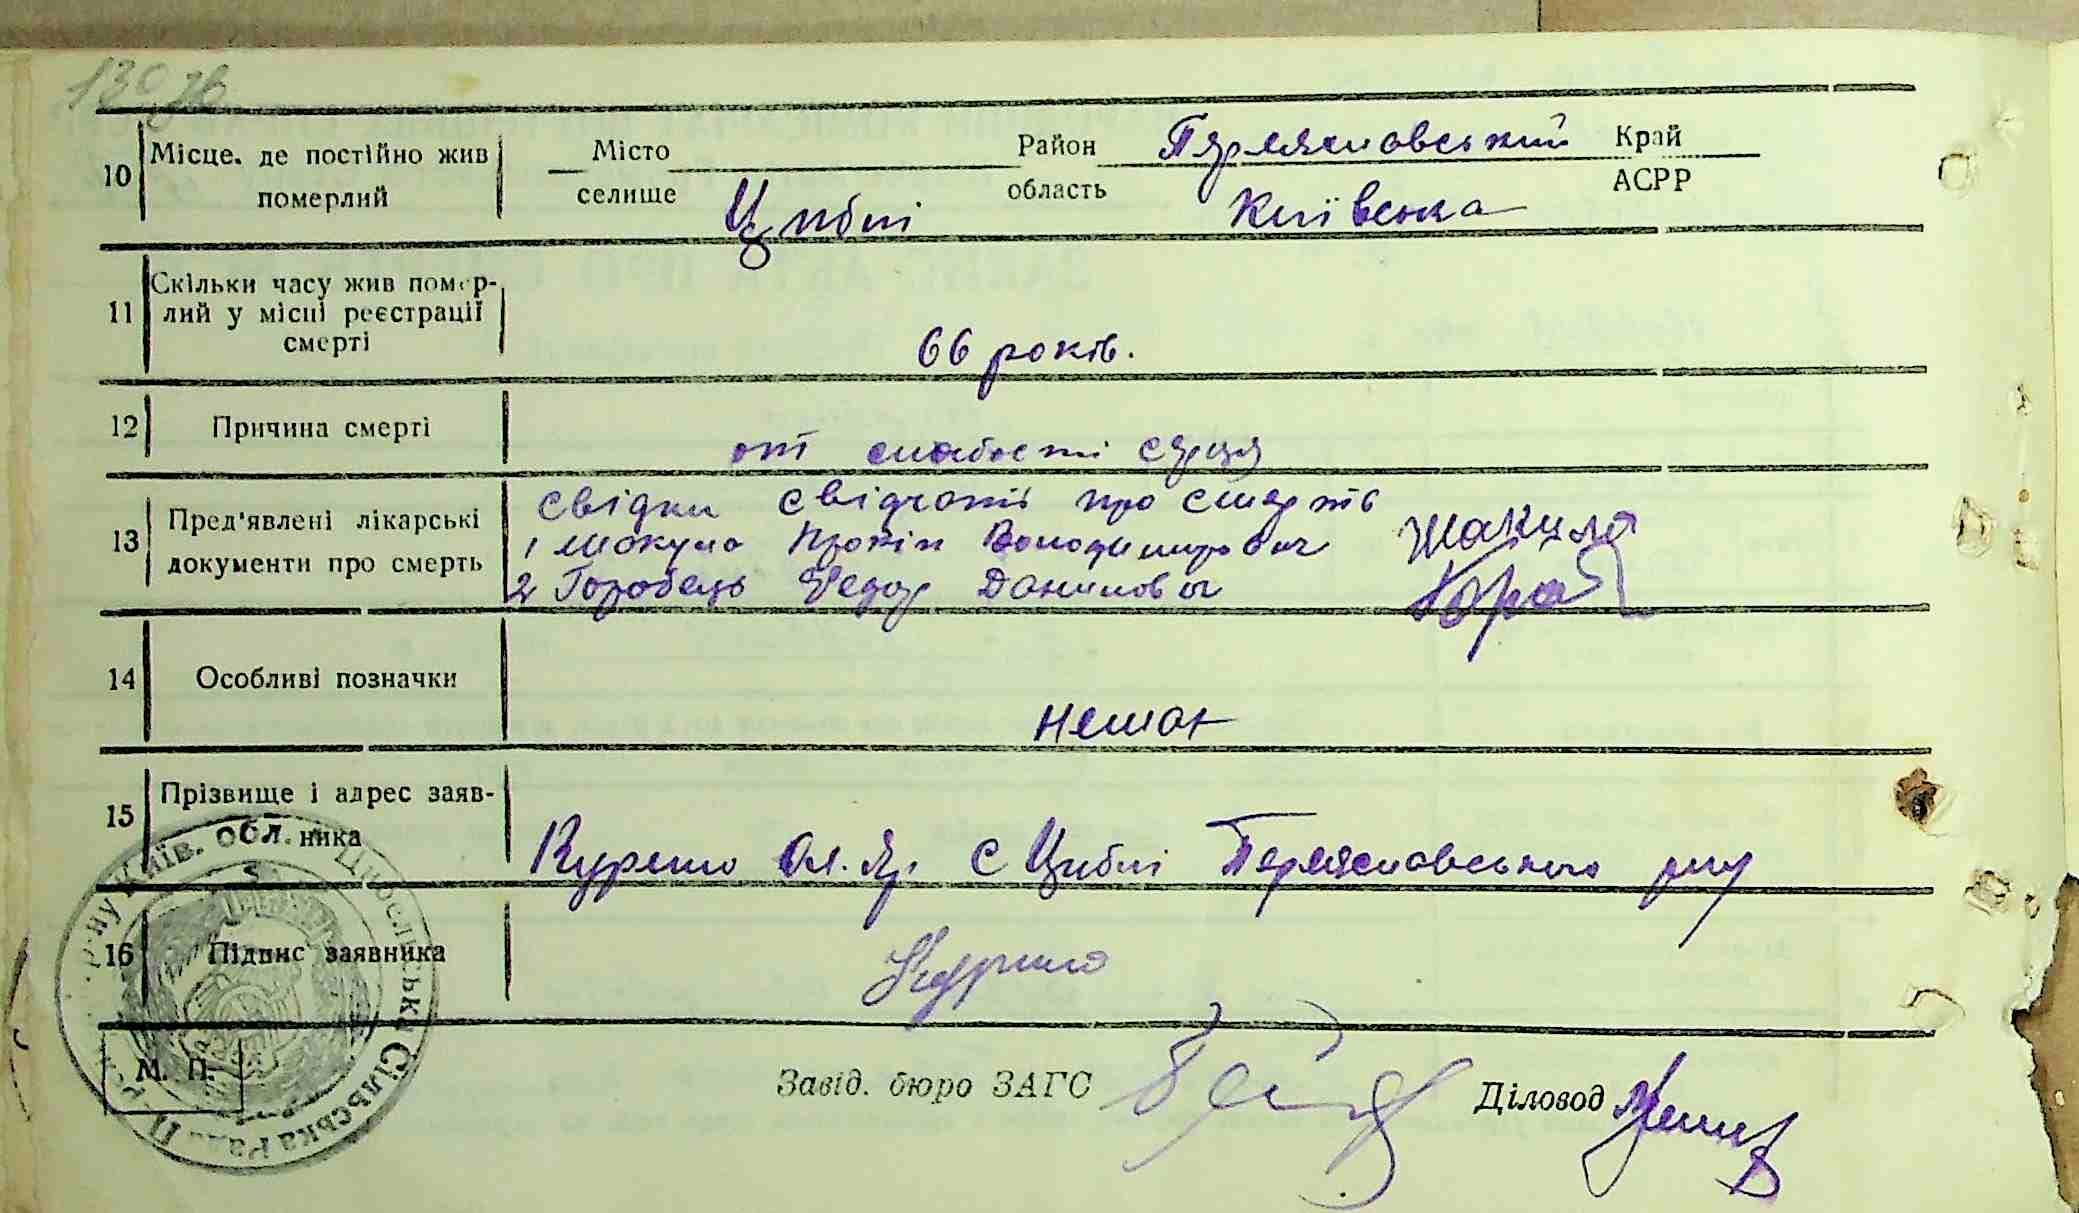 130 зв
10 Місце, де постійно жив померлий
Місто селище Циблі
Район Переяславський Край
область Київська АСРР
11 Скільки часу жив помер-
лий у місці реєстрації
смерті
66 років.
12 Причина смерті
от слабості серця
13 Пред'явлені лікарські
документи про смерть
свідки свідчать про смерть
1 Прокіп Володимирович
2 Горобець Федор Данилович
14 Особливі позначки
немає
15 Прізвище і адрес заяв-
ника
Курило Ол. Яр. с Циблі Переяславського р-ну
16 Підпис заявника
Курило
М. П.
Завід. бюро ЗАГС
Діловод
Циблівська Сільська Рада
ну Київ. обл.